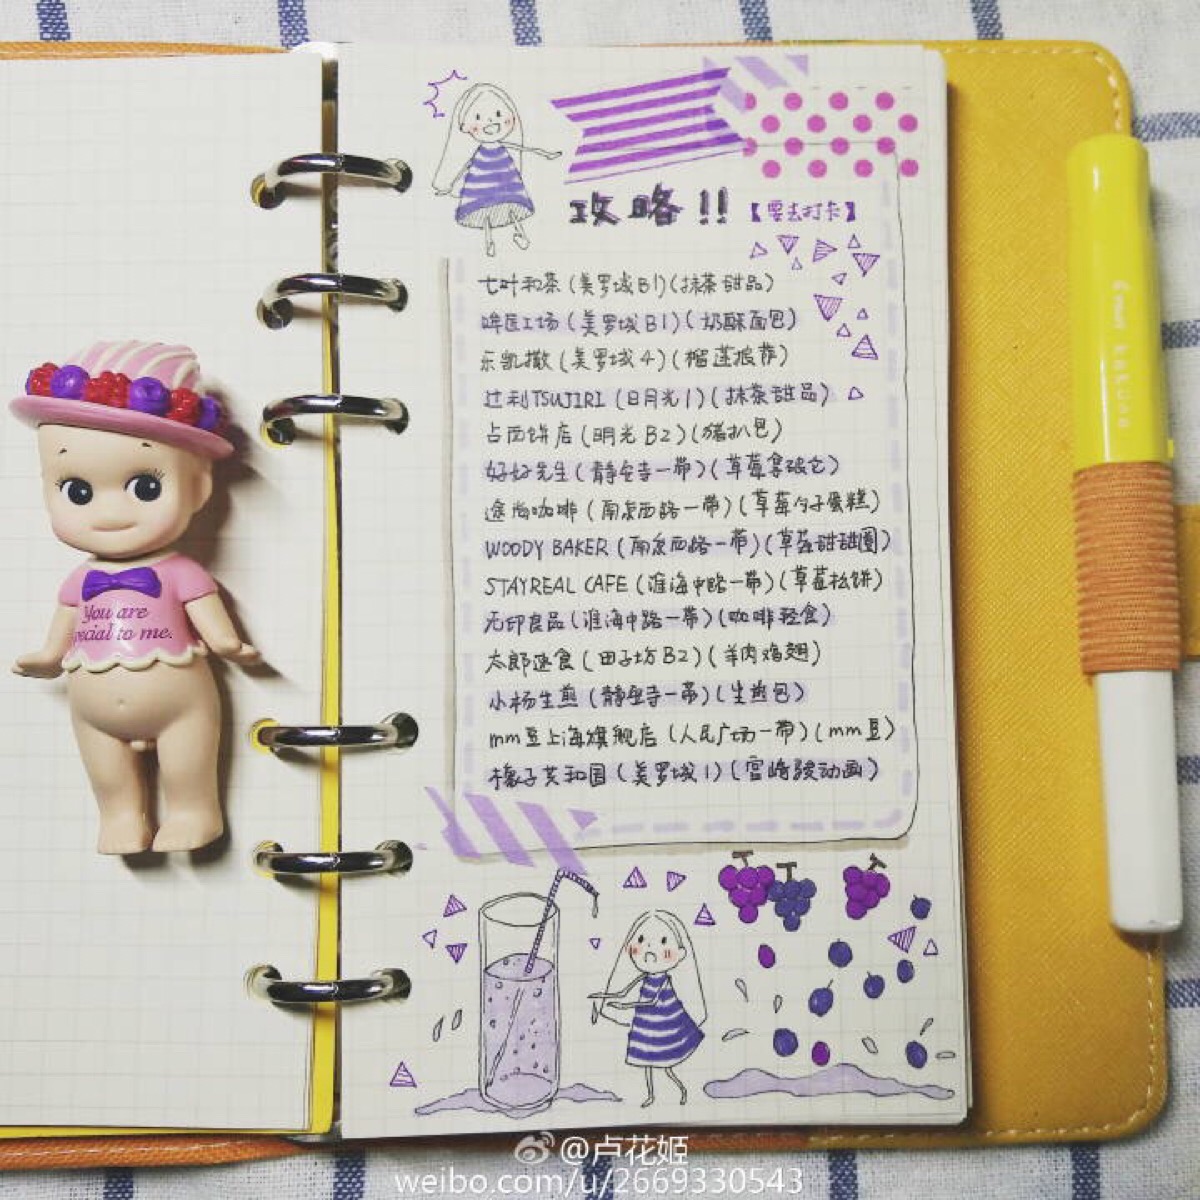 攻略!!【要去打卡】
七叶和茶(美罗城B1)(抹茶甜品)
哞匠工场(美罗城B1)(奶酥面包)
乐凯撒(美罗城4)(榴莲披萨)
辻利TSUJIRI(日月光1)(抹茶甜品)
占西饼店(明光B2)(猪扒包)
好好先生(静安寺一带)(草莓拿破仑)
途尚咖啡(南京西路一带)(草莓勺子蛋糕)
WOODY BAKER(南京西路一带)(草莓甜甜圈)
STAYREAL CAFE(淮海中路一带)(草莓松饼)
无印良品(淮海中路一带)(咖啡轻食)
太郎速食(田子坊B2)(羊肉鸡翅)
小杨生煎(静安寺一带)(生煎包)
mm豆上海旗舰店(人民广场一带)(mm豆)
橡子共和国(美罗城1)(宫崎骏动画)
You are
special to me.
@卢花姬
weibo.com/u/2669330543